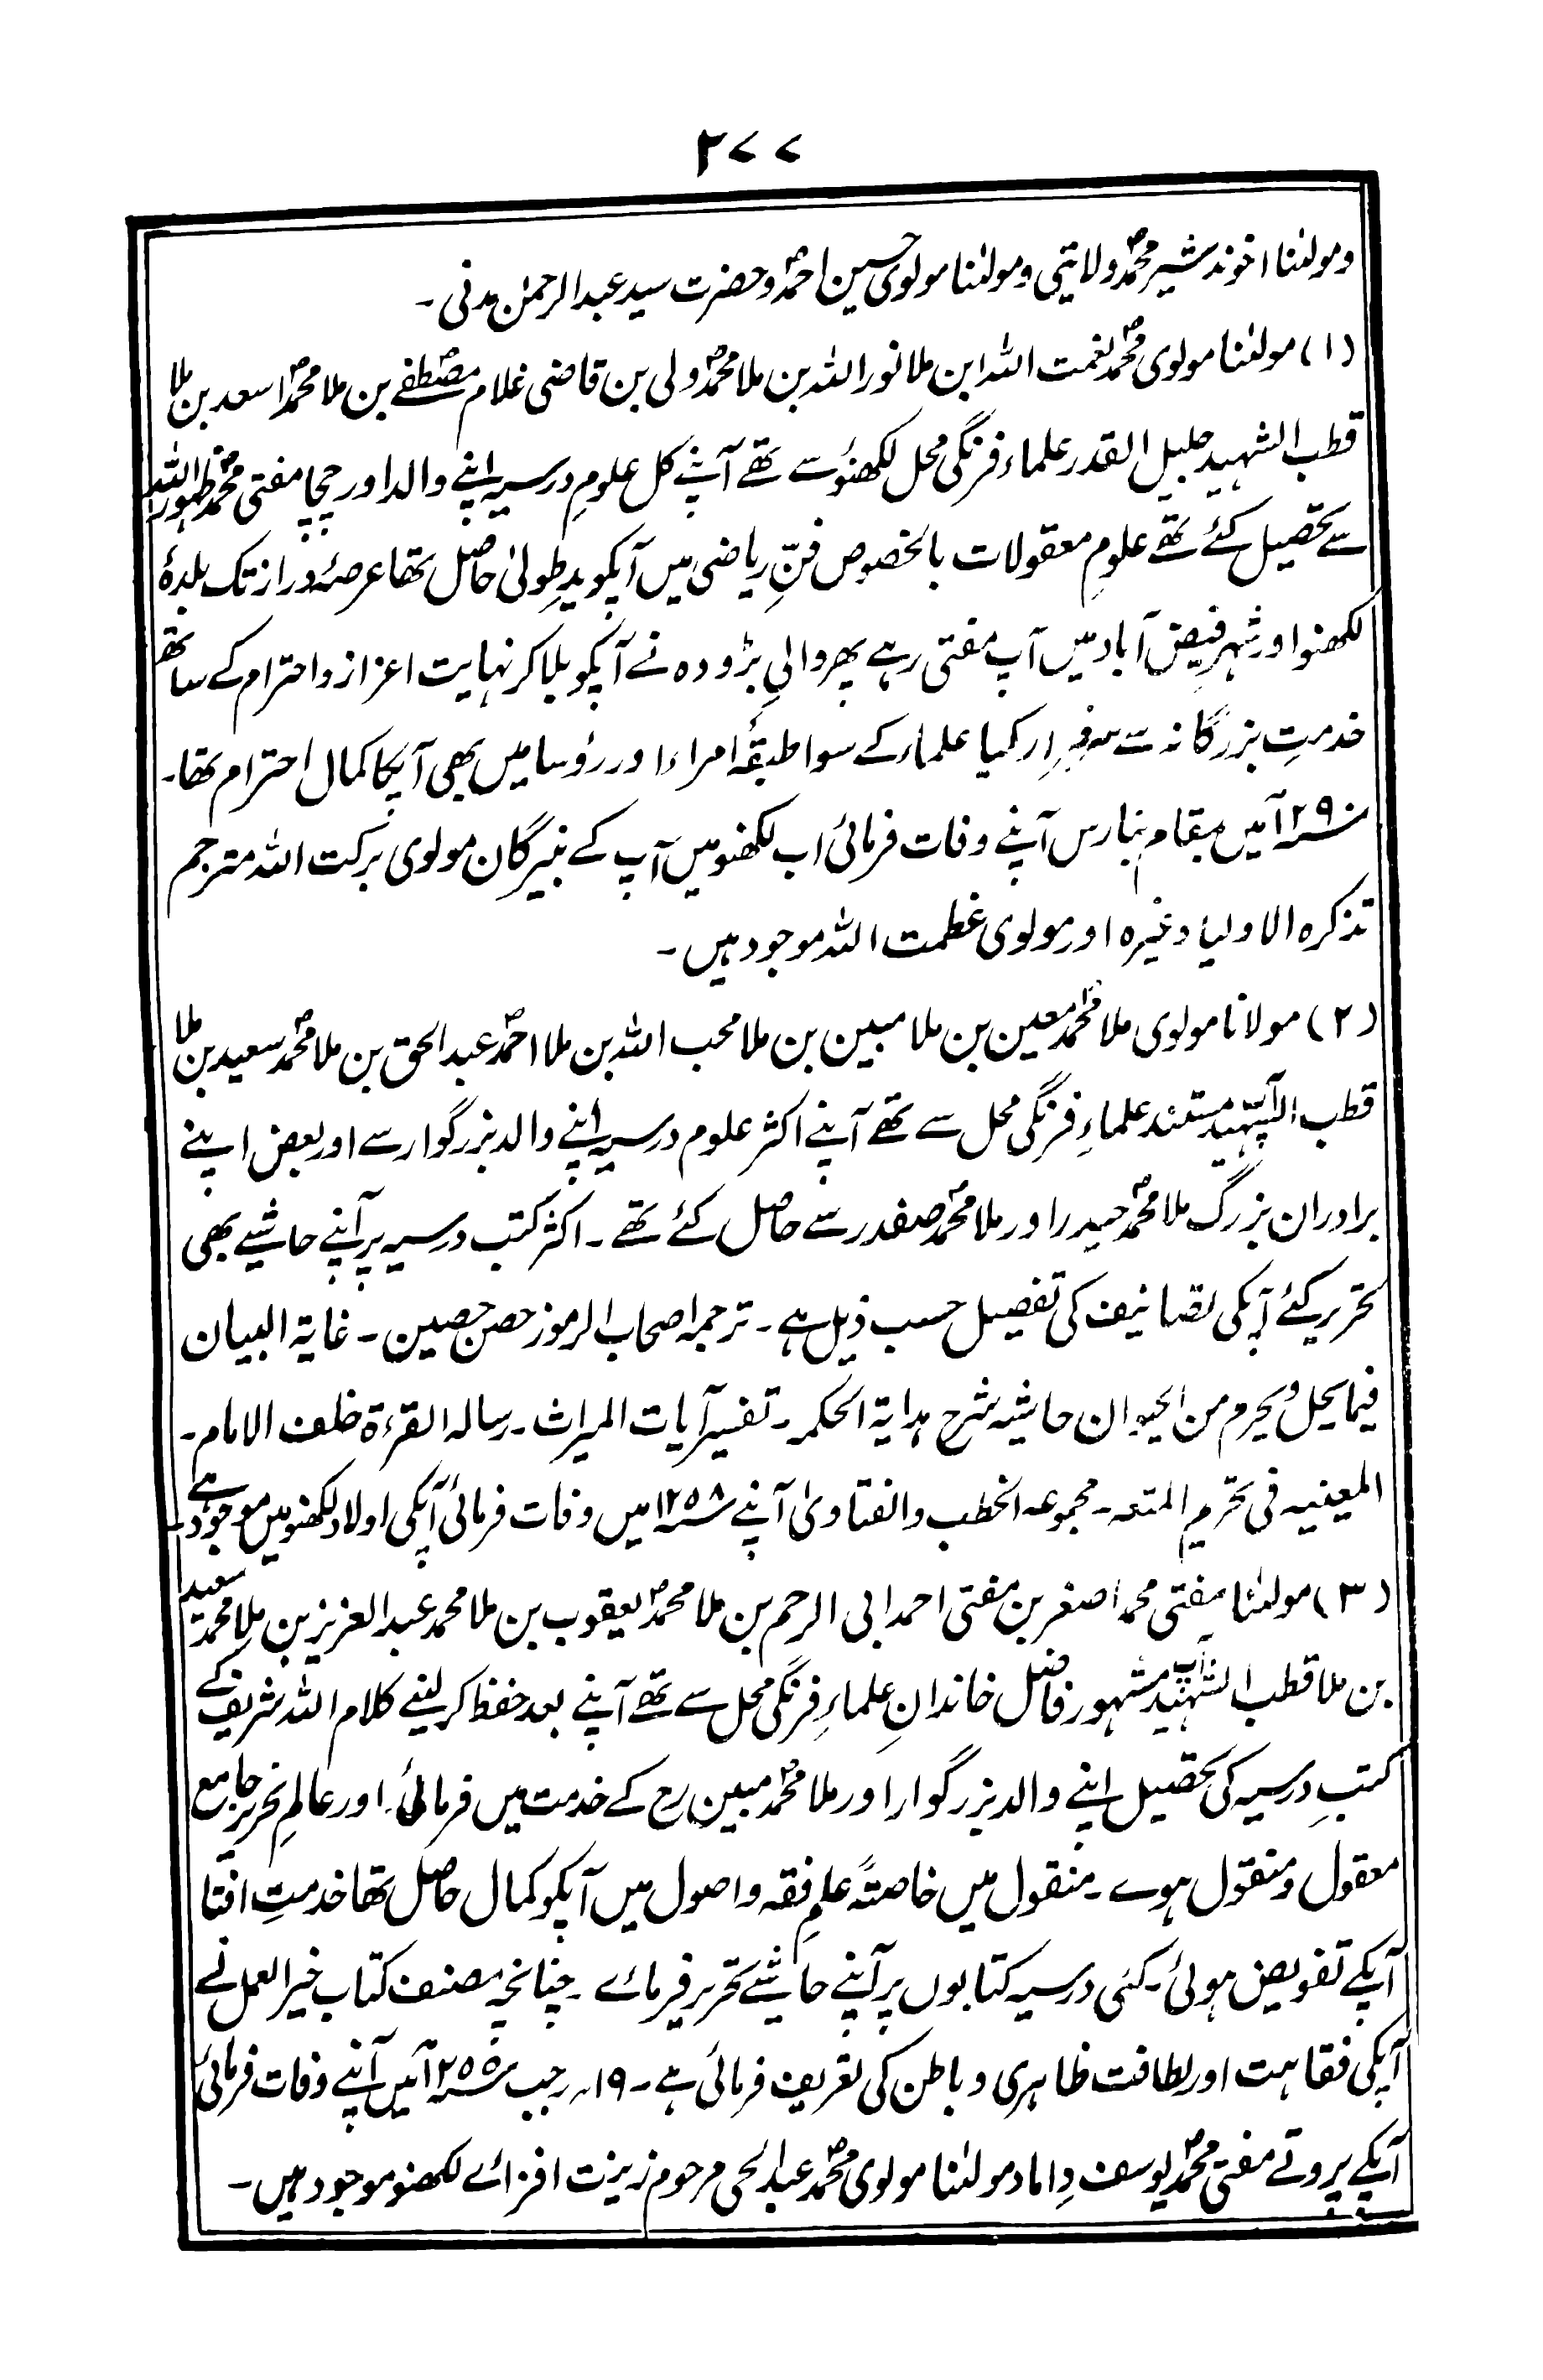 ۲۷۷
ومولٰنا اخوند شیر محمدؐ ولایتی ومولٰنا مولوی حسین احمدؐ وحضرت سید عبد الرحمٰن مدنی ۔
(۱) مولٰنا مولوی محمدؐ نعمت اللہ ابن ملا نور اللہ بن ملا محمدؐ ولی بن قاضی غلام مصطفےؐ بن ملا محمدؐ اسعد بن ملا
قطب الشہید جلیل القدر علماء فرنگی محل لکھنؤ سے تھے آپنے کل علومِ درسیہ اپنے والد اور چچا مفتی محمدؐ ظہور اللہ
سے تحصیل کئے تھے علومِ معقولات بالخصوص فنِّ ریاضی میں آپکو یدِ طولیٰ حاصل تھا عرصۂ دراز تک بلدۂ
لکھنو اور شہر فیض آباد میں آپ مفتی رہے پھر والیِ بڑودہ نے آپکو بلا کر نہایت اعزاز واحترام کے ساتھ
خدمتِ بزرگانہ سے سرفراز کیا علماء کے سوا طبقۂ امراء اور رؤسا میں بھی آپکا کمال احترام تھا۔
۱۲۹۰؁ میں بمقام بنارس آپنے وفات فرمائی اب لکھنو میں آپ کے نبیرگان مولوی برکت اللہ مترجم
تذکرہ الاولیاء وغیرہ اور مولوی عظمت اللہ موجود ہیں ۔
(۲) مولانا مولوی ملا محمدؐ معین بن ملا مبین بن ملا محب اللہ بن ملا احمدؐ عبد الحق بن ملا محمدؐ سعید بن ملا
قطب الشہید مستند علماءِ فرنگی محل سے تھے آپنے اکثر علوم درسیہ اپنے والد بزرگوار سے اور بعض اپنے
برادران بزرگ ملا محمدؐ حیدر اور ملا محمدؐ صفدر سے حاصل کئے تھے ۔ اکثر کتب درسیہ پر آپنے حاشیے بھی
تحریر کئے آپکی تصانیف کی تفصیل حسب ذیل ہے ۔ ترجمہ اصحاب الرموز حصن حصین ۔ غایۃ البیان
فیما یحل و یحرم من الحیوان حاشیہ شرح ہدایۃ الحکمہ ۔ تفسیر آیات المیراث ۔ رسالہ القرءۃ خلف الامام ۔
المعینیہ فی تحریم المتعہ ۔ مجموعہ الخطب والفتاویٰ آپنے ۱۲۵۸؁ میں وفات فرمائی آپکی اولاد لکھنو میں موجود ہے ۔
(۳) مولٰنا مفتی محمد اصغر بن مفتی احمد ابی الرحم بن ملا محمدؐ یعقوب بن ملا محمد عبد العزیز بن ملا محمدؐ سعید
بن ملا قطب الشہید مشہور فاضل خاندانِ علماءِ فرنگی محل سے تھے آپنے بعد حفظ کر لینے کلام اللہ شریف کے
کتبِ درسیہ کی تحصیل اپنے والد بزرگوار اور ملا محمدؐ مبین رح کے خدمت میں فرمائی اور عالمِ نحریر جامع
معقول و منقول ہوے ۔ منقول میں خاصتہً علمِ فقہ واصول میں آپکو کمال حاصل تھا خدمتِ افتا
آپکے تفویض ہوئی ۔ کئی درسیہ کتابوں پر آپنے حاشیے تحریر فرمائے ۔ چنانچہ مصنف کتاب خیر العمل نے
آپکی فقاہت اور لطافت ظاہری و باطن کی تعریف فرمائی ہے ۔ ۱۹؍ رجب ۱۲۵۵؁ میں آپنے وفات فرمائی
آپکے پروتے مفتی محمدؐ یوسف داماد مولٰنا مولوی محمدؐ عبد الحی مرحوم زینت افزاے لکھنو موجود ہیں ۔